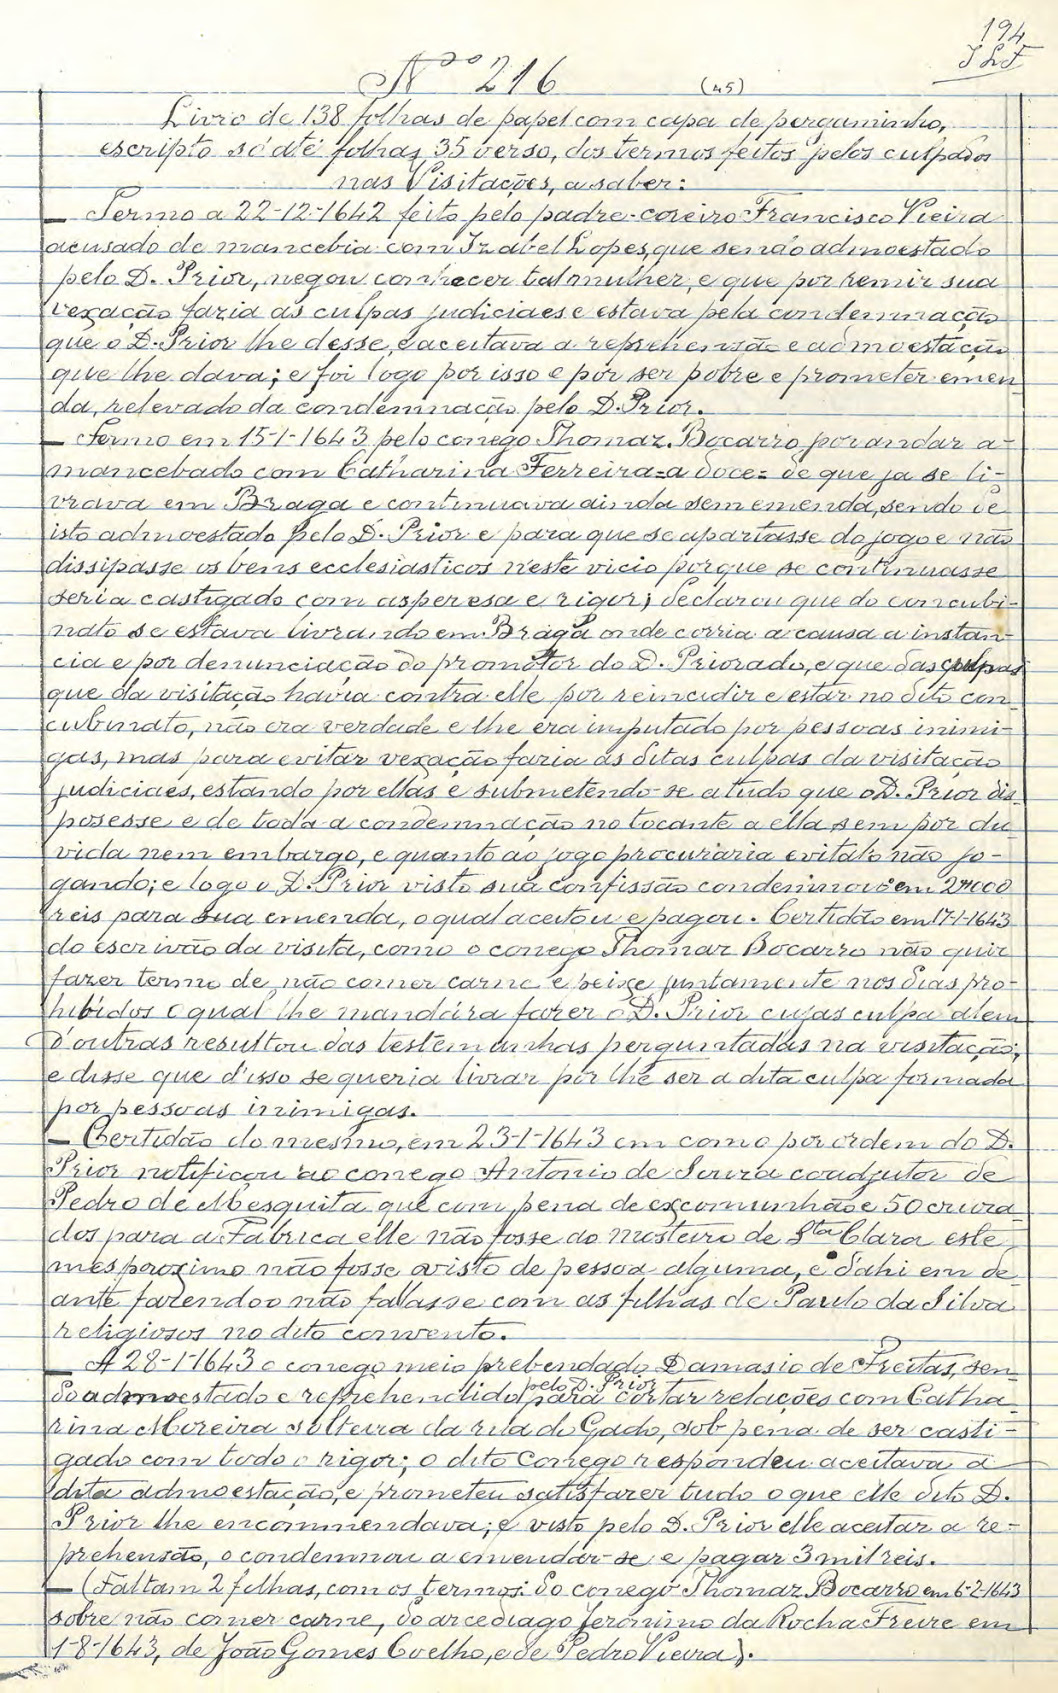 194
J L F
Nº 216 (45)
Livro de 138 folhas de papel com capa de pergaminho,
escripto só até folhas 35 verso, dos termos feitos pelos culpados
nas Visitações, a saber:
— Termo a 22-12-1642 feito pelo padre-coreiro Francisco Vieira
acusado de mancebia com Izabel Lopes, que sendo admoestado
pelo D. Prior, negou conhecer tal mulher, e que por remir sua
vexação fazia as culpas judiciaes e estava pela condemnação
que o D. Prior lhe desse, e aceitava a reprehensão e admoestação
que lhe dava; e foi logo por isso e por ser pobre e prometer emen
da, relevado da condemnação pelo D. Prior.
— Termo em 15-1-1643 pelo conego Thomaz Bocarro por andar a-
mancebado com Catharina Ferreira=a doce= de que ja se li-
vrava em Braga e continuava ainda sem emenda, sendo de
isto admoestado pelo D. Prior e para que se apartasse do jogo e não
dissipasse os bens ecclesiasticos n'este vicio porque se continuasse
seria castigado com asperesa e rigor; declarou que do concubi-
nato se estava livrando em Braga onde corria a causa a instan-
cia e por denunciação do promotor do D. Priorado, e que das culpas
que da visitação havia contra elle por reincidir e estar no dito con-
cubinato, não era verdade e lhe era imputado por pessoas inimi-
gas, mas para evitar vexação faria as ditas culpas da visitação
judiciaes, estando por ellas e submetendo-se a tudo que o D. Prior dis-
posesse e de toda a condemnação no tocante a ella sem por du-
vida nem embargo, e quanto ao jogo procuraria evitalo não jo-
gando; e logo o D. Prior visto sua confissão condemnou-o em 2$000
reis para sua emenda, o qual aceitou e pagou. Certidão em 17-1-1643
do escrivão da visita, como o conego Thomaz Bocarro não quiz
fazer termo de não comer carne e peixe juntamente nos dias pro-
hibidos o qual lhe mandára fazer o D. Prior cujas culpa alem
d'outras resultou das testemunhas perguntadas na visitação;
e disse que d'isso se queria livrar por lhe ser a dita culpa formada
por pessoas inimigas.
— Certidão do mesmo, em 23-1-1643 em como por ordem do D.
Prior notificou ao conego Antonio de Souza coadjutor de
Pedro de Mesquita que com pena de excomunhão e 50 cruza-
dos para a Fabrica elle não fosse ao mosteiro de Sta Clara este
mes proximo não fosse avisto de pessoa alguma, e d'ahi em de-
ante fazendo-o não falasse com as filhas de Paulo da Silva
religiosos no dito convento.
— A 28-1-1643 o conego meio prebendado Damasio de Freitas, sen-
do admoestado e reprehendido pelo D. Prior para cortar relações com Catha-
rina Moreira solteira da rua do Gado, sob pena de ser casti-
gado com todo o rigor; o dito Conego respondeu aceitava a
dita admoestação, e prometeu satisfazer tudo o que elle dito D.
Prior lhe encommendava; e visto pelo D. Prior elle aceitar a re-
prehensão, o condemnou a emendar-se e pagar 3 mil reis.
— (Faltam 2 folhas, com os termos: do conego Thomaz Bocarro em 6-2-1643
sobre não comer carne, do arcediago Jeronimo da Rocha Freire em
1-8-1643, de João Gomes Coelho, e de Pedro Vieira).